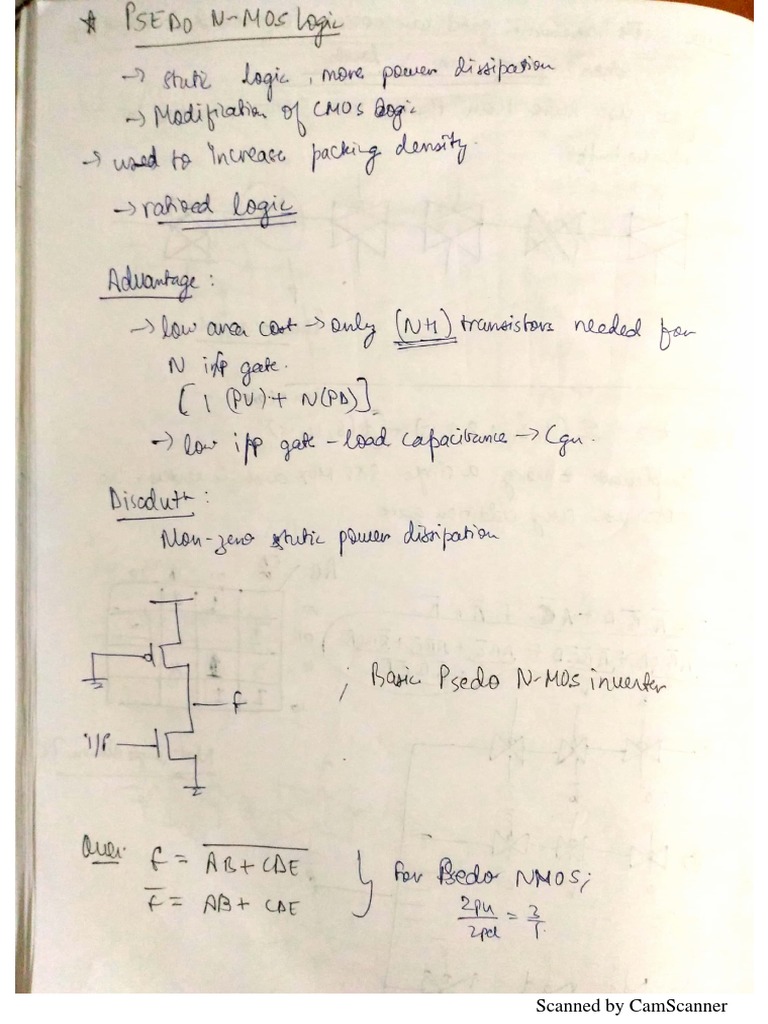 * PSEDO N-MOS Logic
→ static logic, more power dissipation
→ Modification of CMOS Logic
→ used to increase packing density.
→ ratioed logic
Advantage:
→ low area cost → only (N+1) transistors needed for
N i/p gate.
[1 (PU) + N(PD)]
→ low i/p gate - load capacitance → Cgn.
Disadv:
Non-zero static power dissipation
f
; Basic Psedo N-MOS inverter
I/P
Ques: f = AB + CDE
f̅ = AB + CDE
} for Psedo NMOS;
Zpu/Zpd = 3/1.
Scanned by CamScanner